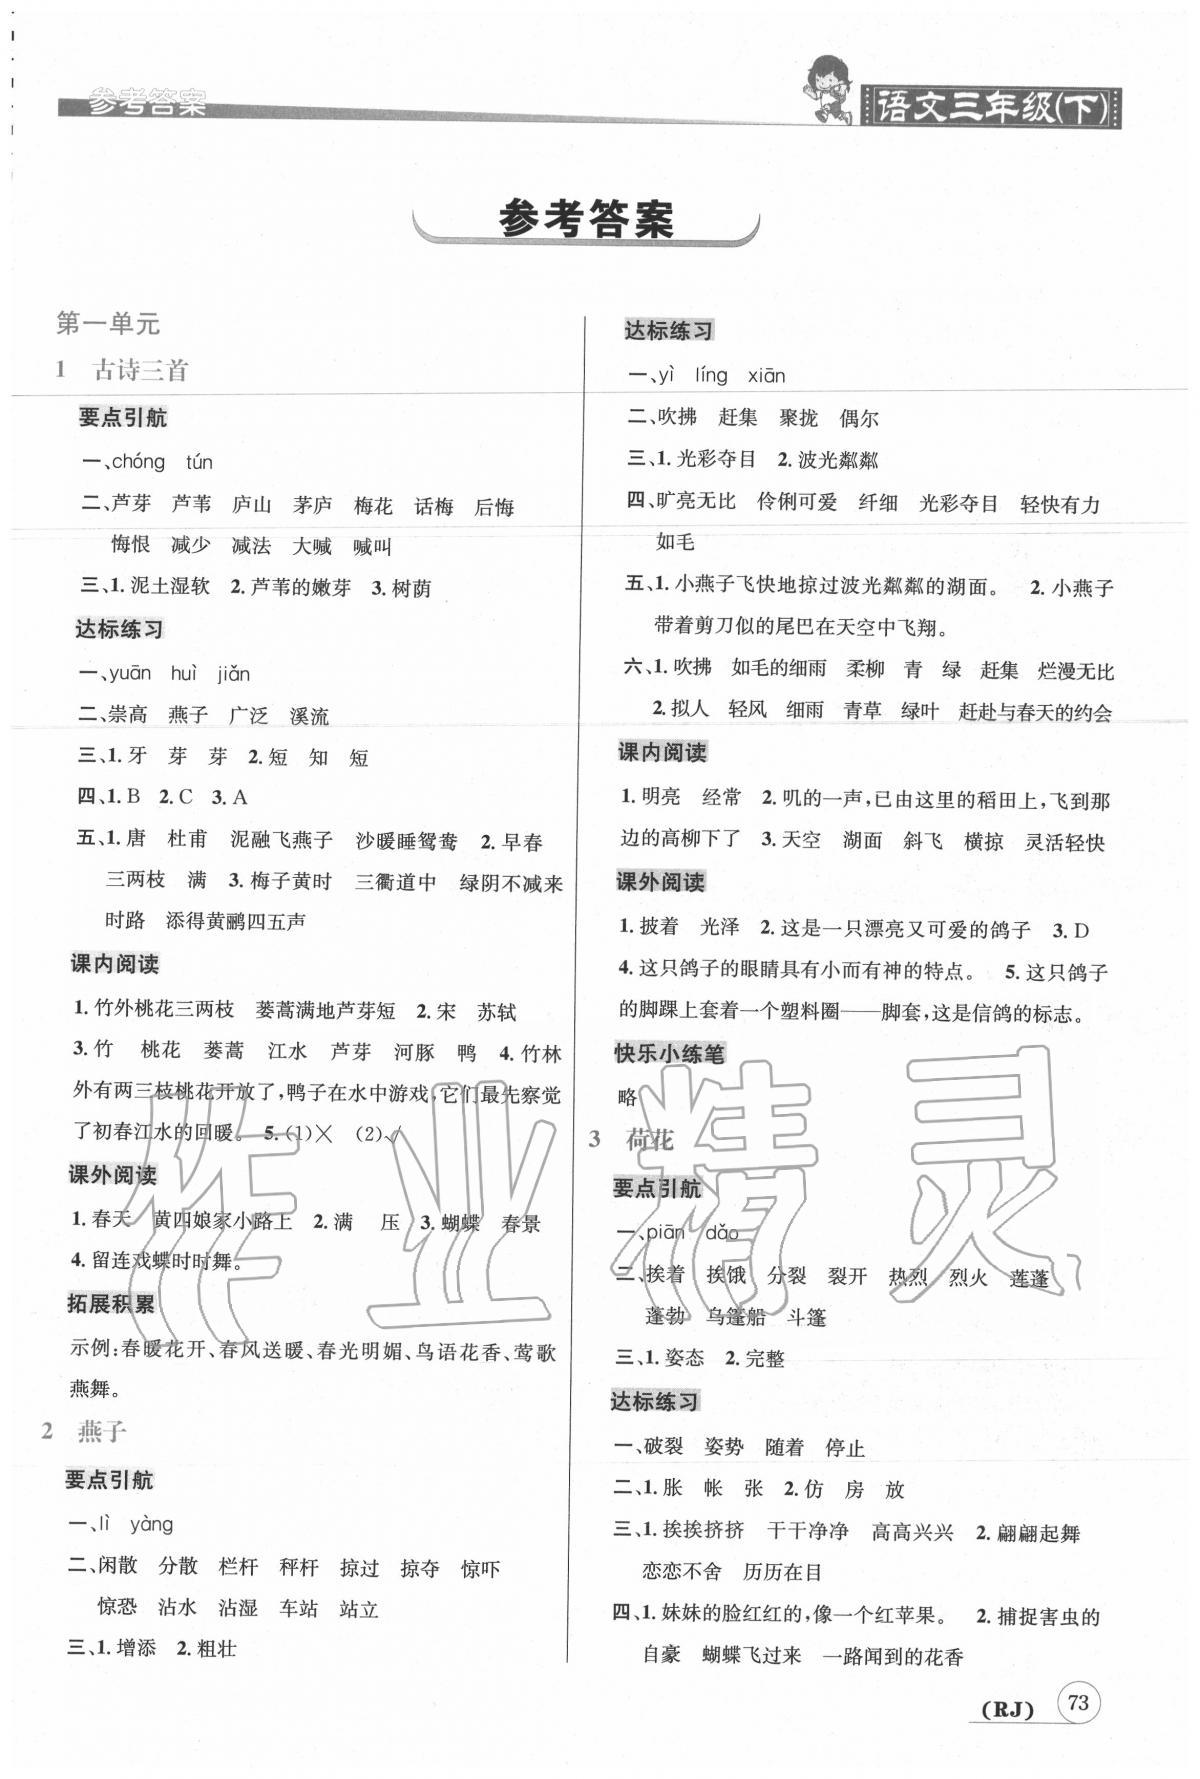 参考答案
语文三年级(下)
参考答案
第一单元
1 古诗三首
要点引航
一、chóng tún
二、芦芽 芦苇 庐山 茅庐 梅花 话梅 后悔
悔恨 减少 减法 大喊 喊叫
三、1.泥土湿软 2.芦苇的嫩芽 3.树荫
达标练习
一、yuān huì jiǎn
二、崇高 燕子 广泛 溪流
三、1.牙 芽 芽 2.短 知 短
四、1.B 2.C 3.A
五、1.唐 杜甫 泥融飞燕子 沙暖睡鸳鸯 2.早春
三两枝 满 3.梅子黄时 三衢道中 绿阴不减来
时路 添得黄鹂四五声
课内阅读
1.竹外桃花三两枝 蒌蒿满地芦芽短 2.宋 苏轼
3.竹 桃花 蒌蒿 江水 芦芽 河豚 鸭 4.竹林
外有两三枝桃花开放了,鸭子在水中游戏,它们最先察觉
了初春江水的回暖。 5.(1)× (2)√
课外阅读
1.春天 黄四娘家小路上 2.满 压 3.蝴蝶 春景
4.留连戏蝶时时舞。
拓展积累
示例:春暖花开、春风送暖、春光明媚、鸟语花香、莺歌
燕舞。
2 燕子
要点引航
一、lì yàng
二、闲散 分散 栏杆 秤杆 掠过 掠夺 惊吓
惊恐 沾水 沾湿 车站 站立
三、1.增添 2.粗壮
达标练习
一、yì líng xiān
二、吹拂 赶集 聚拢 偶尔
三、1.光彩夺目 2.波光粼粼
四、旷亮无比 伶俐可爱 纤细 光彩夺目 轻快有力
如毛
五、1.小燕子飞快地掠过波光粼粼的湖面。 2.小燕子
带着剪刀似的尾巴在天空中飞翔。
六、1.吹拂 如毛的细雨 柔柳 青 绿 赶集 烂漫无比
2.拟人 轻风 细雨 青草 绿叶 赶赴与春天的约会
课内阅读
1.明亮 经常 2.叽的一声,已由这里的稻田上,飞到那
边的高柳下了 3.天空 湖面 斜飞 横掠 灵活轻快
课外阅读
1.披着 光泽 2.这是一只漂亮又可爱的鸽子 3.D
4.这只鸽子的眼睛具有小而有神的特点。 5.这只鸽子
的脚踝上套着一个塑料圈——脚套,这是信鸽的标志。
快乐小练笔
略
3 荷花
要点引航
一、piān dǎo
二、挨着 挨饿 分裂 裂开 热烈 烈火 莲蓬
蓬勃 乌篷船 斗篷
三、1.姿态 2.完整
达标练习
一、破裂 姿势 随着 停止
二、1.胀 帐 张 2.仿 房 放
三、1.挨挨挤挤 干干净净 高高兴兴 2.翩翩起舞
恋恋不舍 历历在目
四、1.妹妹的脸红红的,像一个红苹果。 2.捕捉害虫的
自豪 蝴蝶飞过来 一路闻到的花香
(RJ) 73
作业精灵